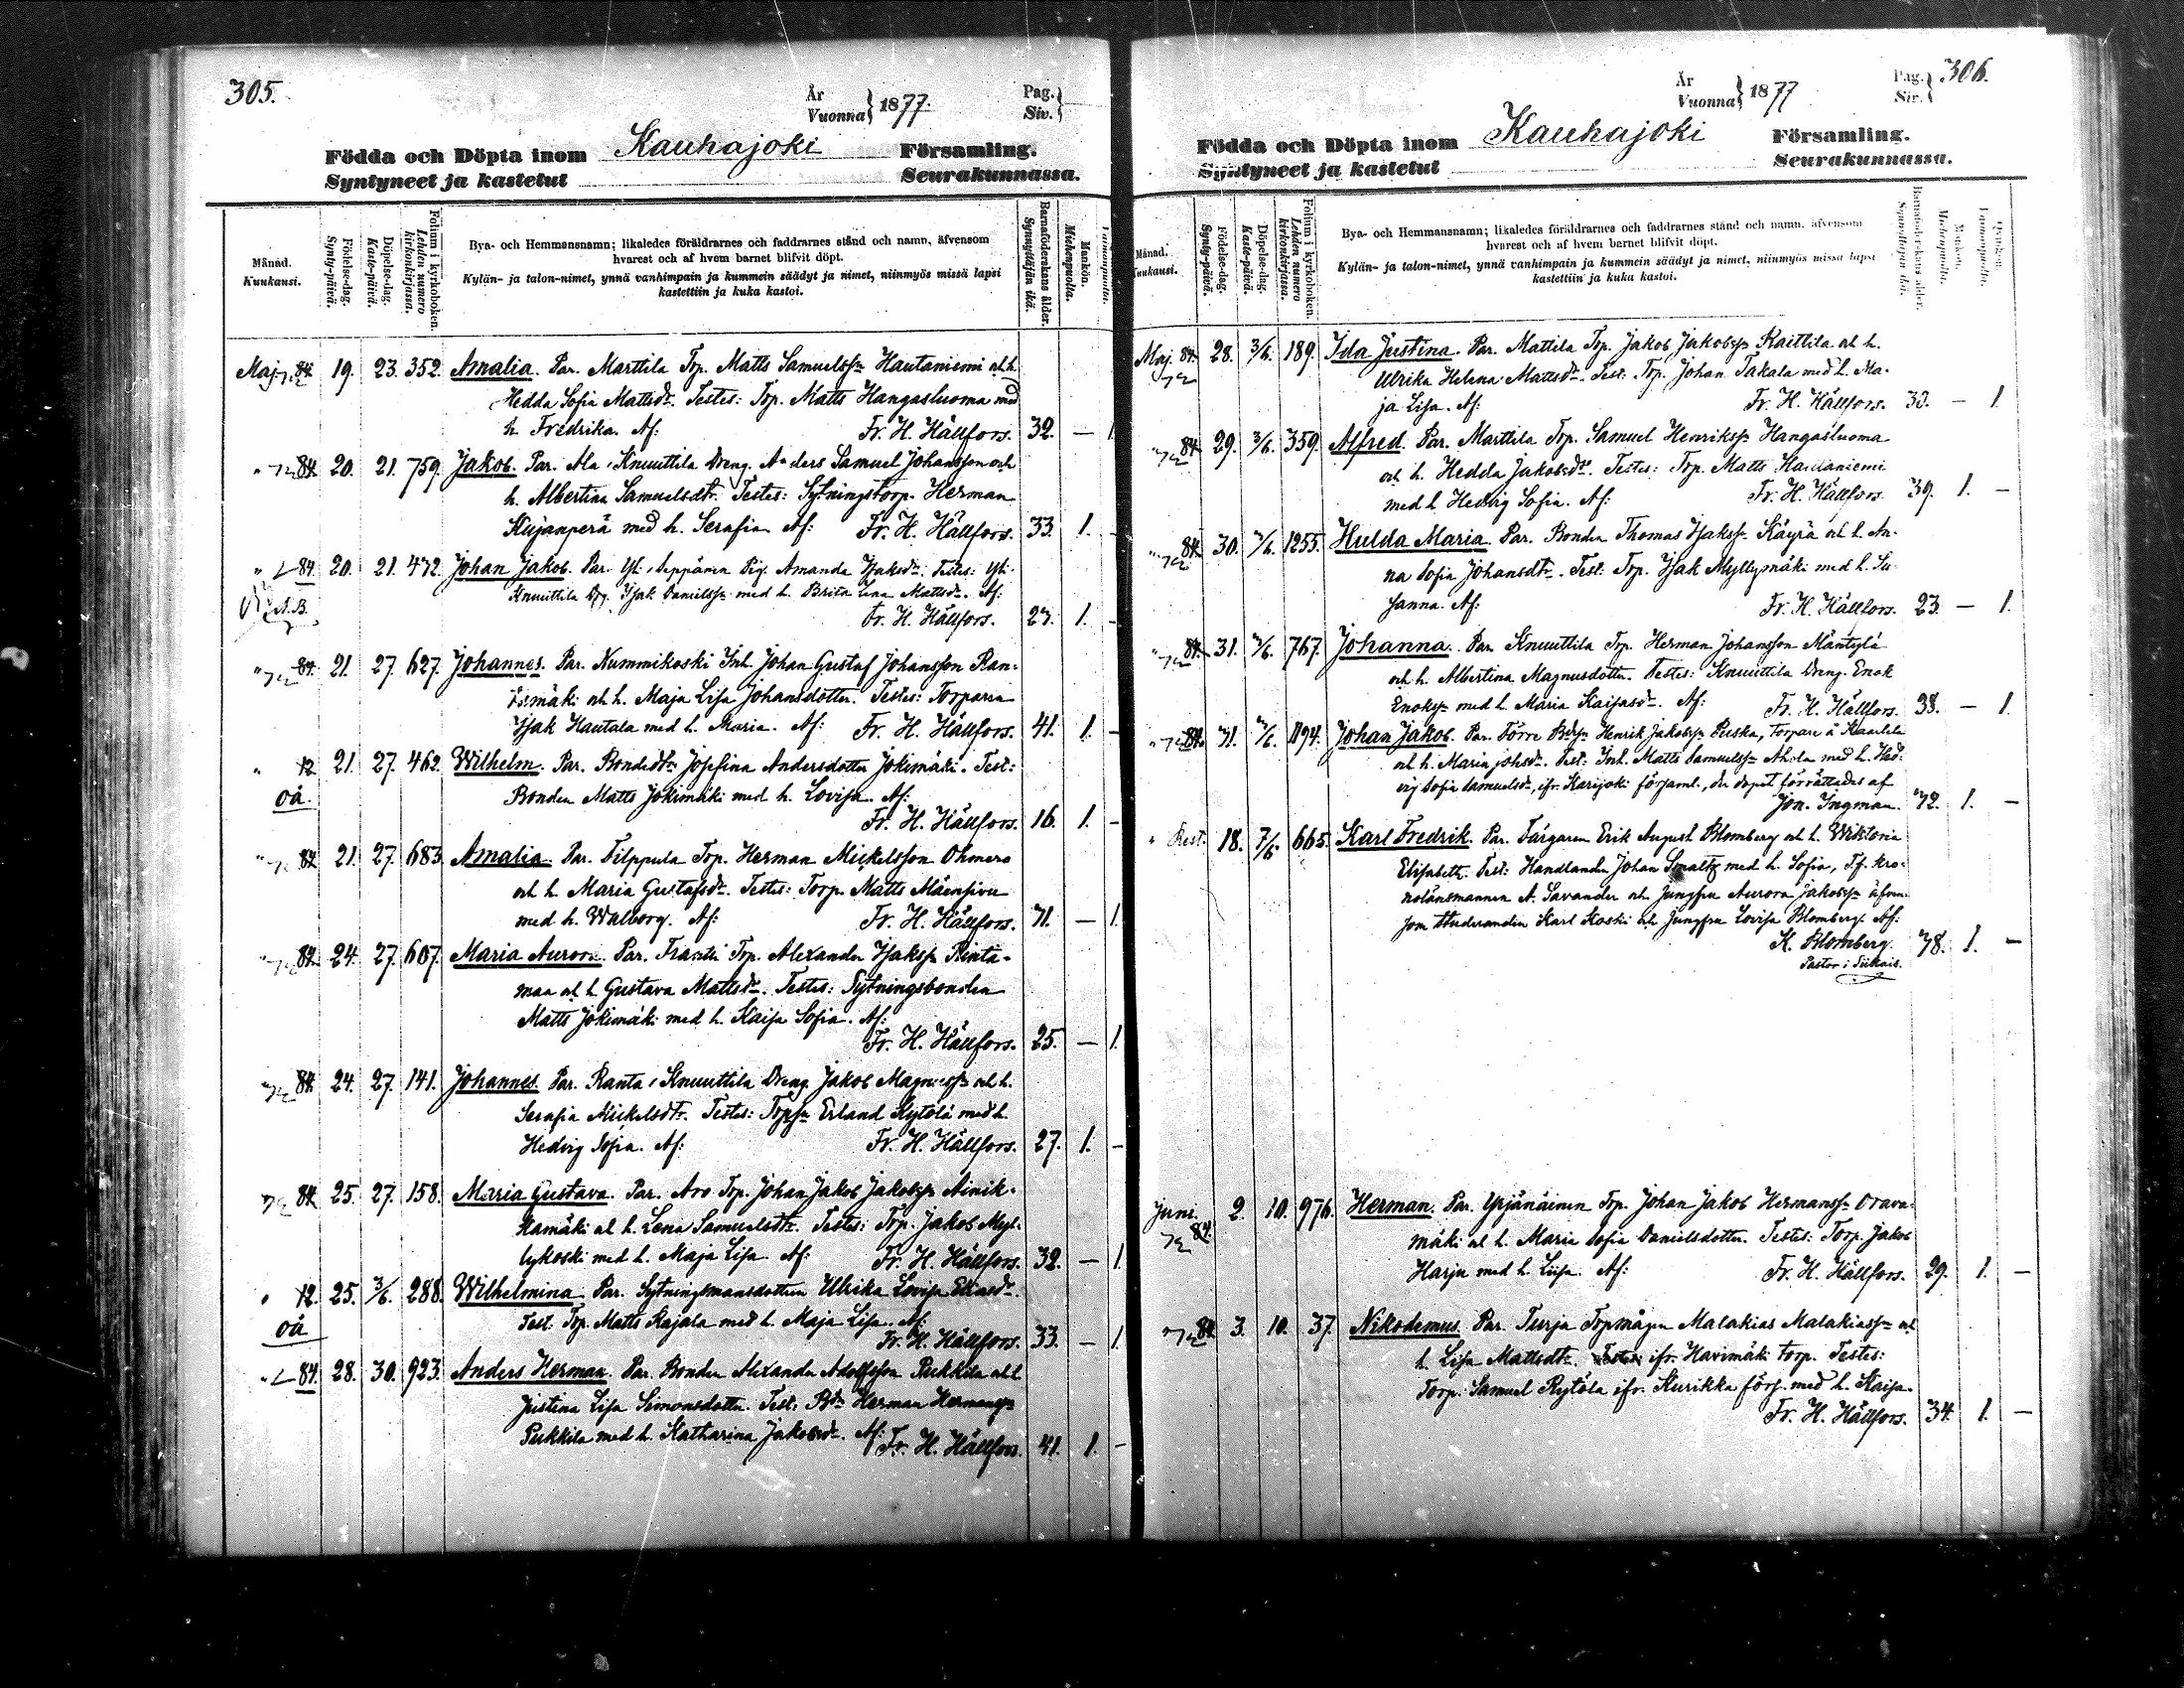 305.
År
Vuonna } 1877.
Pag.
Siv. }
Födda och Döpta inom Kauhajoki Församling.
Syntyneet ja kastetut Seurakunnassa.
Månad.
Kuukausi.
Födelse-dag.
Synty-päivä.
Döpelse-dag.
Kaste-päivä.
Folium i kyrkoboken.
Lehden numero kirkonkirjassa.
Bya- och Hemmansnamn; likaledes föräldrarnes och faddrarnes stånd och namn, äfvensom
hvarest och af hvem barnet blifvit döpt.
Kylän- ja talon-nimet, ynnä vanhimpain ja kummein säädyt ja nimet, niinmyös missä lapsi
kastettiin ja kuka kastoi.
Barnaföderskans ålder.
Synnyttäjän ikä.
Mankön.
Miehenpuolta.
Maj 84 19. 23. 352. Amalia. Par. Marttila Torp. Matts Samuelss:n Hautaniemi o h.
Hedda Sofia Mattsdr. Testes: Torp. Matts Hangasluoma med
h. Fredrika. Af: Fr. H. Hällfors. 32. — 1
" 84 20. 21. 759. Jakob. Par. Ala-Knuuttila Dreng. Anders Samuel Johansson och
h. Albertina Samuelsdtr. Testes: Sytningstorp. Herman
Kujanperä med h. Serafia Af: Fr. H. Hällfors. 33. 1. -
" 84 20. 21. 472. Johan Jakob. Par. Yli-Seppänen Pig. Amanda Isaksdr. Testes: Yli-
Knuuttila Drg. Isak Danielss:n med h. Brita Lena Mattsdr. Af:
N.B. Fr. H. Hällfors. 27. 1. -
" 84. 21. 27. 627. Johannes. Par. Nummikoski Inh. Johan Gustaf Johansson Ran-
mäki och h. Maja Lisa Johansdotter. Testes: Torparen
Isak Hautala med h. Maria. Af: Fr. H. Hällfors. 41. 1. -
" 12 21. 27. 462. Wilhelm. Par. Bondedtr Josefina Andersdotter Jokimäki. Test:
oä. Bonden Matts Jokimäki med h. Lovisa. Af:
Fr. H. Hällfors. 16. 1. -
" 84 21. 27. 683. Amalia. Par. Filppula Torp. Herman Mickelsson Ohmero
och h. Maria Gustafsdr. Testes: Torp. Matts Mäensivu
med h. Walborg. Af: Fr. H. Hällfors. 71. — 1
" 84. 24. 27. 607. Maria Aurora. Par. Frantti Torp. Alexander Isakss:n Rinta-
maa och h. Gustava Mattsdr. Testes: Sytningsbonden
Matts Jokimäki med h. Kaisa Sofia. Af:
Fr. H. Hällfors. 25. — 1.
" 84. 24. 27. 141. Johannes. Par. Ranta-Knuuttila Dreng. Jakob Magnuss:n och h.
Serafia Mickelsdtr. Testes: Erland Kytölä med h.
Hedvig Sofia. Af: Fr. H. Hällfors. 27. 1. -
84. 25. 27. 158. Maria Gustava. Par. Aro Torp. Johan Jakob Jakobss:n Ainik-
kamäki och h. Lena Samuelsdtr. Testes: Torp. Jakob Myl-
lykoski med h. Maja Lisa. Af: Fr. H. Hällfors. 32. — 1
" 12. 25. 3/6. 288. Wilhelmina. Par. Sytningsmansdottren Ulrika Lovisa Eliasdr.
oä Test. Torp. Matts Rajala med h. Maja Lisa. Af:
Fr. H. Hällfors. 33. — 1
" 84. 28. 30. 923. Anders Herman. Par. Bonden Alexander Adolfsson Pukkila och h.
Justina Lisa Simonsdotter. Test: Bdn Herman Hermanss:n
Pukkila med h. Katharina Jakobsdr. Af: Fr. H. Hällfors. 41. 1. -
År
Vuonna } 1877
Pag.
Siv. } 306.
Födda och Döpta inom Kauhajoki Församling.
Syntyneet ja kastetut Seurakunnassa.
Månad.
Kuukausi.
Födelse-dag.
Synty-päivä.
Döpelse-dag.
Kaste-päivä.
Folium i kyrkoboken.
Lehden numero kirkonkirjassa.
Bya- och Hemmansnamn; likaledes föräldrarnes och faddrarnes stånd och namn, äfvensom
hvarest och af hvem barnet blifvit döpt.
Kylän- ja talon-nimet, ynnä vanhimpain ja kummein säädyt ja nimet, niinmyös missä lapsi
kastettiin ja kuka kastoi.
Barnaföderskans ålder.
Synnyttäjän ikä.
Mankön.
Miehenpuolta.
Qvinkön.
Vaimonpuolta.
Maj. 84. 28. 3/6. 189. Ida Justina. Par. Mattila Torp. Jakob Jakobss:n Kaittila och h.
Ulrika Helena Mattsdr. Test. Torp. Johan Takala med h. Ma-
ja Lisa. Af: Fr. H. Hällfors. 33. — 1.
" 84. 29. 3/6. 359. Alfred. Par. Marttila Torp. Samuel Henrikss:n Hangasluoma
och h. Hedda Jakobsdr. Testes: Torp. Matts Hautaniemi
med h. Hedvig Sofia. Af: Fr. H. Hällfors. 39. 1. —
" 84. 30. 1255. Hulda Maria. Par. Bonden Thomas Isakss:n Käyrä och h. An-
na Sofia Johansdtr. Test. Torp. Isak Myllymäki med h. Su-
sanna. Af: Fr. H. Hällfors. 23. — 1.
" 84. 31. 767. Johanna. Par. Knuuttila Torp. Herman Johansson Mäntylä
och h. Albertina Magnusdotter. Testes: Knuuttila Dreng. Enok
Enokss:n med h. Maria Kaisasdr. Af: Fr. H. Hällfors. 38. — 1.
" 84. 31. 1194. Johan Jakob. Par. Förre Bdsn Henrik Jakobss:n Puska, Torpare å Kaarlela
och h. Maria Johsdr. Test: Inh. Matts Samuelss:n Ahola med h. Hed-
vig Sofia Samuelsdr, ifr. Karijoki församl., der dopet förrättades af
Jon. Ingman. 42. 1. —
" Rest. 18. 7/6. 665. Karl Fredrik. Par. Färgaren Erik August Blomberg och h. Wiktoria
Elisabeth. Test: Handlanden Johan Smaltz med h. Sofia, Tf. kro-
nolänsmannen A. Savander och Jungfru Aurora Jakobss:n äfven-
som Studeranden Karl Koski och Jungfru Lovisa Blomberg. Af:
K. Blomberg. 38. 1. —
Pastor i Siikais.
Juni. 84. 2. 10. 976. Herman. Par. Yrjänäinen Torp. Johan Jakob Hermanss:n Orava-
mäki och h. Maria Sofia Danielsdotter. Testes: Torp. Jakob
Harju med h. Lisa. Af: Fr. H. Hällfors. 29. 1. —
84. 3. 10. 37. Nikodemus. Par. Turja Torpmågen Malakias Malakiass:n och
h. Lisa Mattsdtr. ifr. Harimäki torp. Testes:
Torp. Samuel Rytölä ifr. Kurikka förs. med h. Kaisa.
Fr. H. Hällfors. 34. 1. —